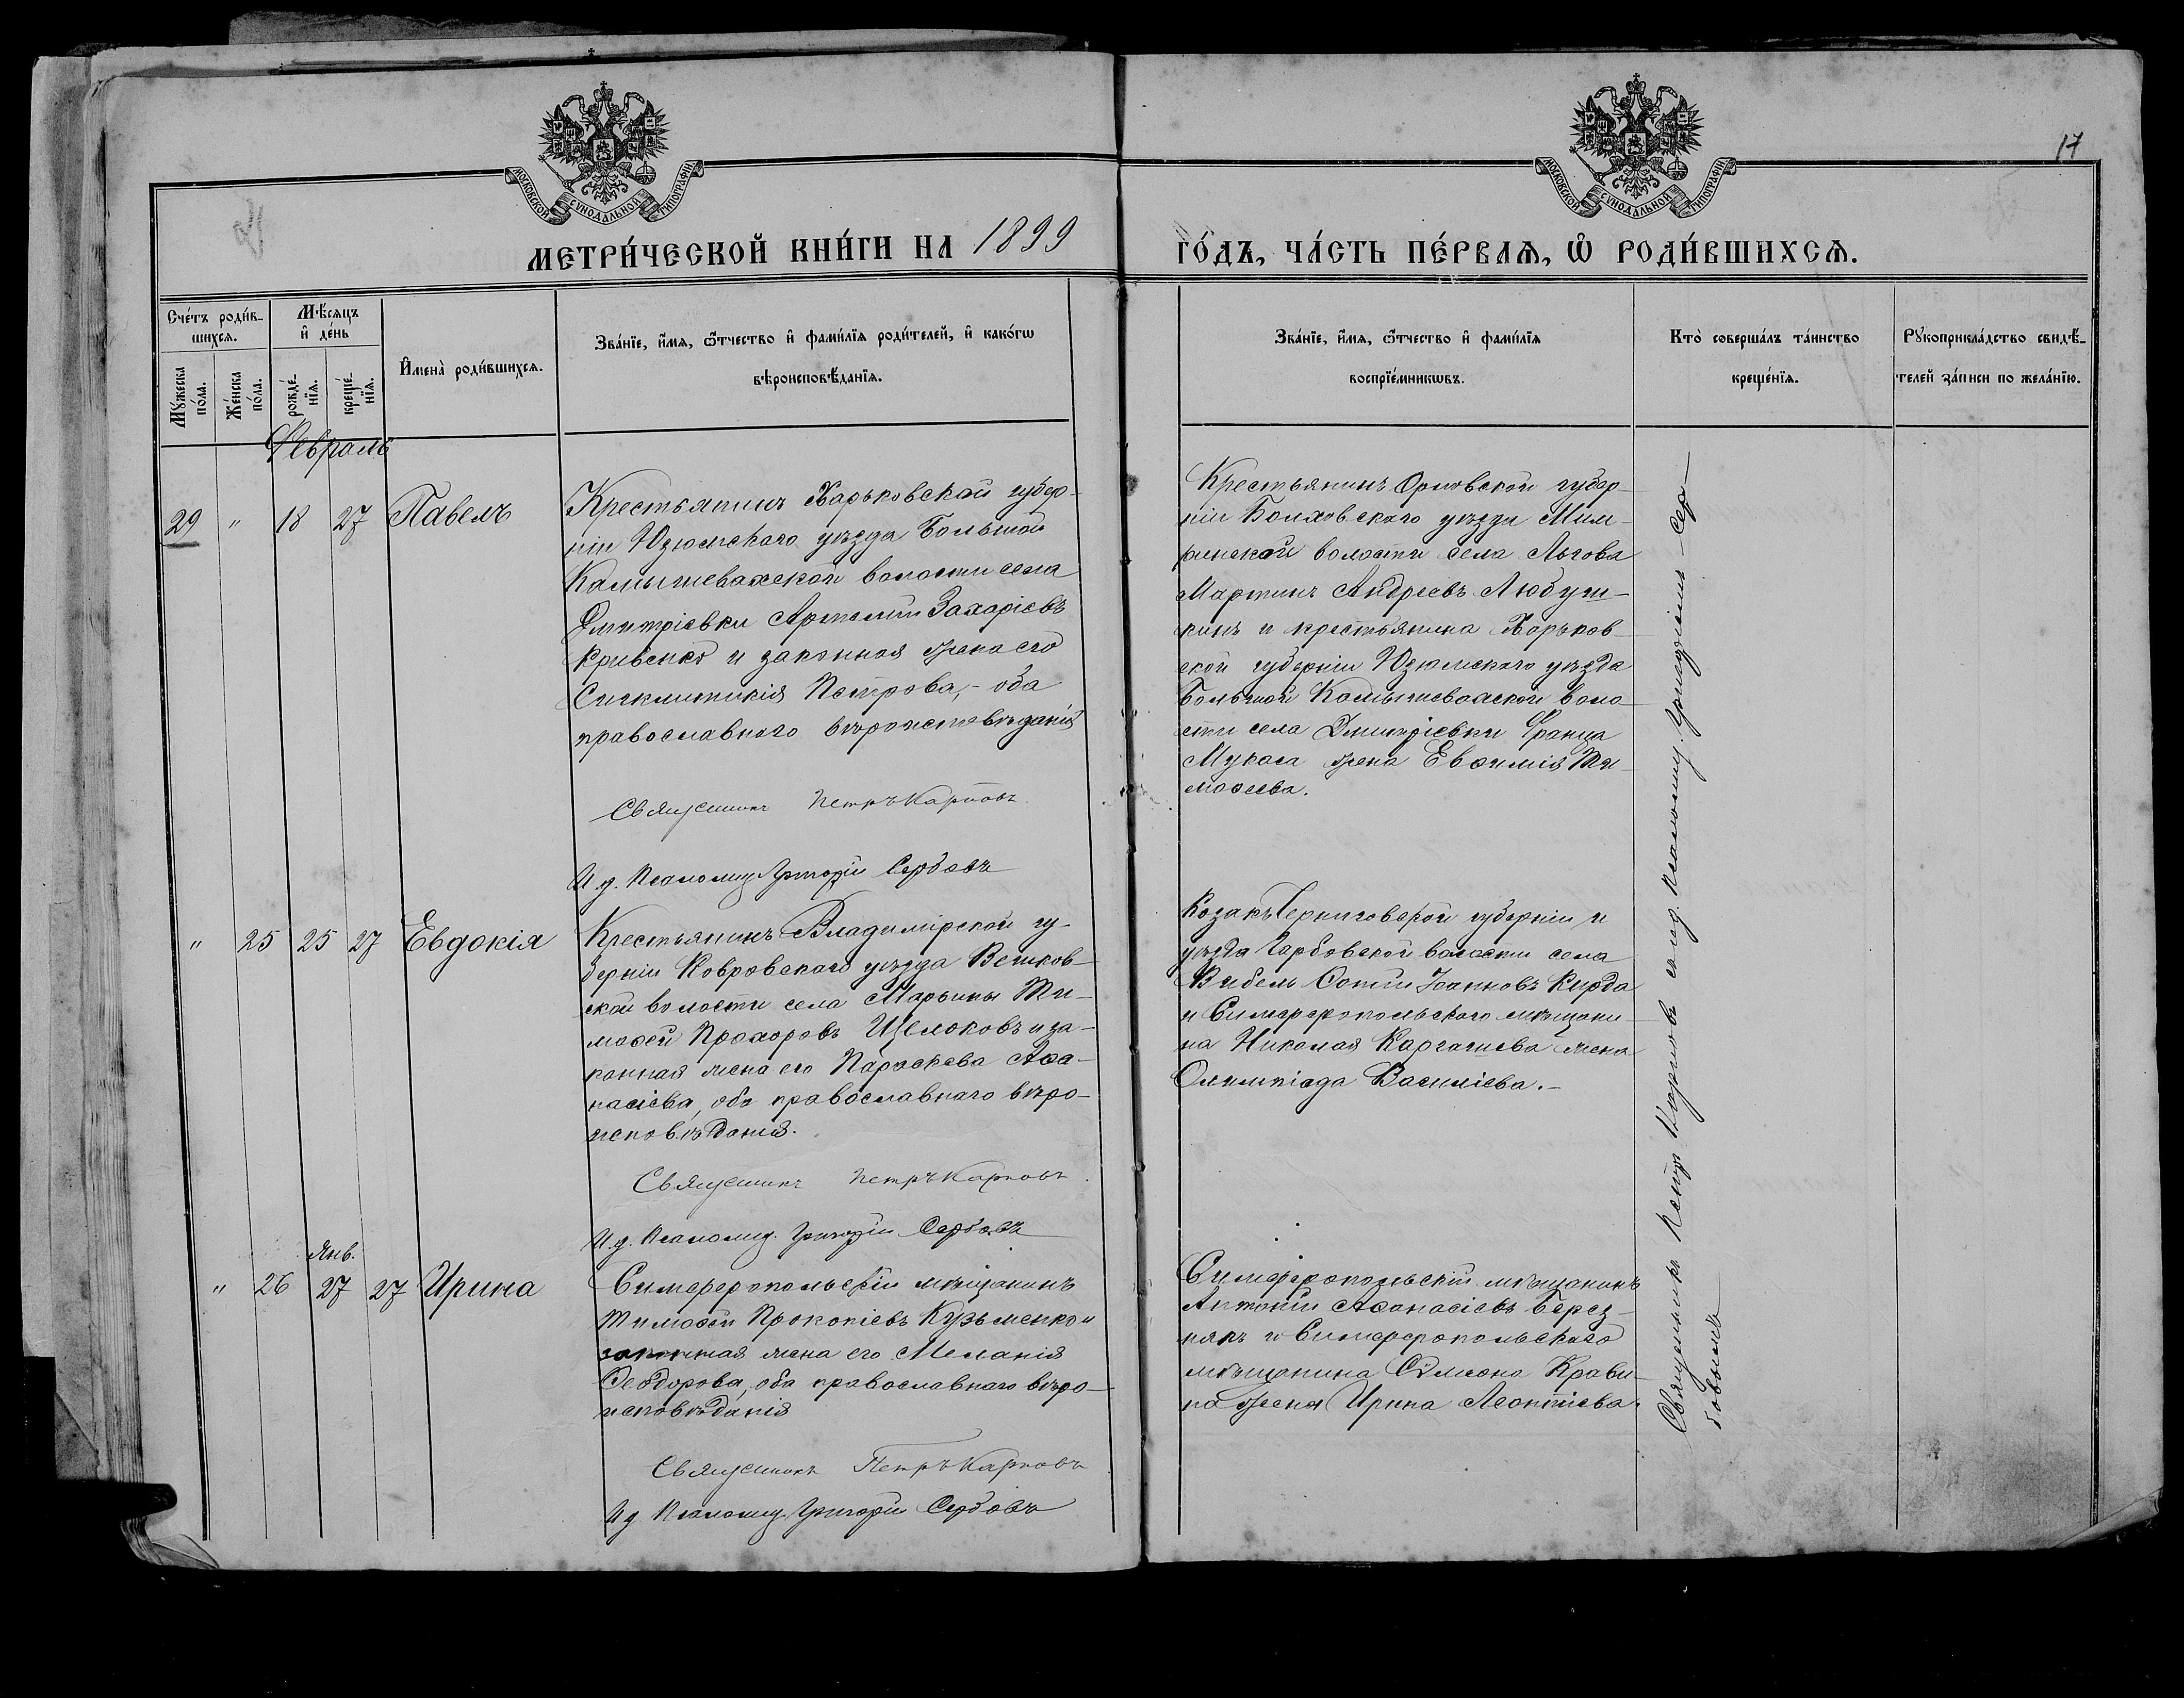 17
МОСКОВСКОЙ СУНОДАЛЬНОЙ ТИПОГРАФІИ
МОСКОВСКОЙ СУНОДАЛЬНОЙ ТИПОГРАФІИ
МЕТРИ́ЧЕСКОЙ КНИ́ГИ НА 1899 ГО́ДЪ, ЧА́СТЬ ПЕ́РВАѦ, Ѡ҆ РОДИ́ВШИХСѦ.
Сче́тъ роди́в-
шихсѧ.
Мѣ́сяцъ
и҆ де́нь
Мꙋ́жеска
по́ла.
Же́нска
по́ла.
рожде́-
нїѧ.
креще́-
нїѧ.
И҆мена̀ роди́вшихсѧ.
Зва́нїе, и҆́мѧ, ѻ҆́тчество и҆ фами́лїѧ роди́телей, и҆ како́гѡ
вѣроисповѣ́данїѧ.
Зва́нїе, и҆́мѧ, ѻ҆́тчество и҆ фами́лїѧ
воспрїе́мникѡвъ.
Кто̀ соверша́лъ та́инство
креще́нїѧ.
Рꙋкоприкла́дство свидѣ́-
телей за́писи по жела́нїю.
Февраль
29 " 18 27 Павелъ
Крестьянинъ Харьковской губер-
ніи Изюмскаго уѣзда Больше
Камышевахской волости села
Дмитріевки Артемій Захаріевъ
Кривенко и законная жена его
Синклитикія Петрова, - оба
православнаго вѣроисповѣданія
Священникъ Петръ Карповъ
И. д. Псаломщ. Григорій Сербовъ
Крестьянинъ Орловской губер-
ніи Болховскаго уѣзда
волости села Льгова
Мартинъ Андреевъ Любуш-
кинъ и крестьянина Харьков-
ской губерніи Изюмскаго уѣзда
Больше Камышевахской воло-
сти села Дмитріевки Франца
жена Евѳимія Ти-
моѳеева.
" 25 25 27 Евдокія
Крестьянинъ Владимірской гу-
берніи Ковровскаго уѣзда
ской волости села Марьины Ти-
моѳей Прохоровъ Щелоковъ и за-
конная жена его Параскева Аѳа-
насіева, оба православнаго вѣро-
исповѣданія.
Священникъ Петръ Карповъ
И. д. Псаломщ. Григорій Сербовъ
Козакъ Черниговской губерніи и
уѣзда волости села
Іоанновъ Кирда
и Симферопольскаго мѣщани-
на Николая жена
Олимпіада Василіева. -
" 26 Янв. 27 27 Ирина
Симферопольскій мѣщанинъ
Тимоѳей Прокопіевъ Кузьменко и
законная жена его Меланія
Ѳеодорова, оба православнаго вѣро-
исповѣданія
Священникъ Петръ Карповъ
И. д. Псаломщ. Григорій Сербовъ
Симферопольскій мѣщанинъ
Антоній Аѳанасіевъ Берез-
някъ и Симферопольскаго
мѣщанина Сѵмеона Крави-
на жена Ирина Леонтіева.
Священникъ Петръ Карповъ съ и. д. псаломщ. Григоріемъ Сер-
бовымъ